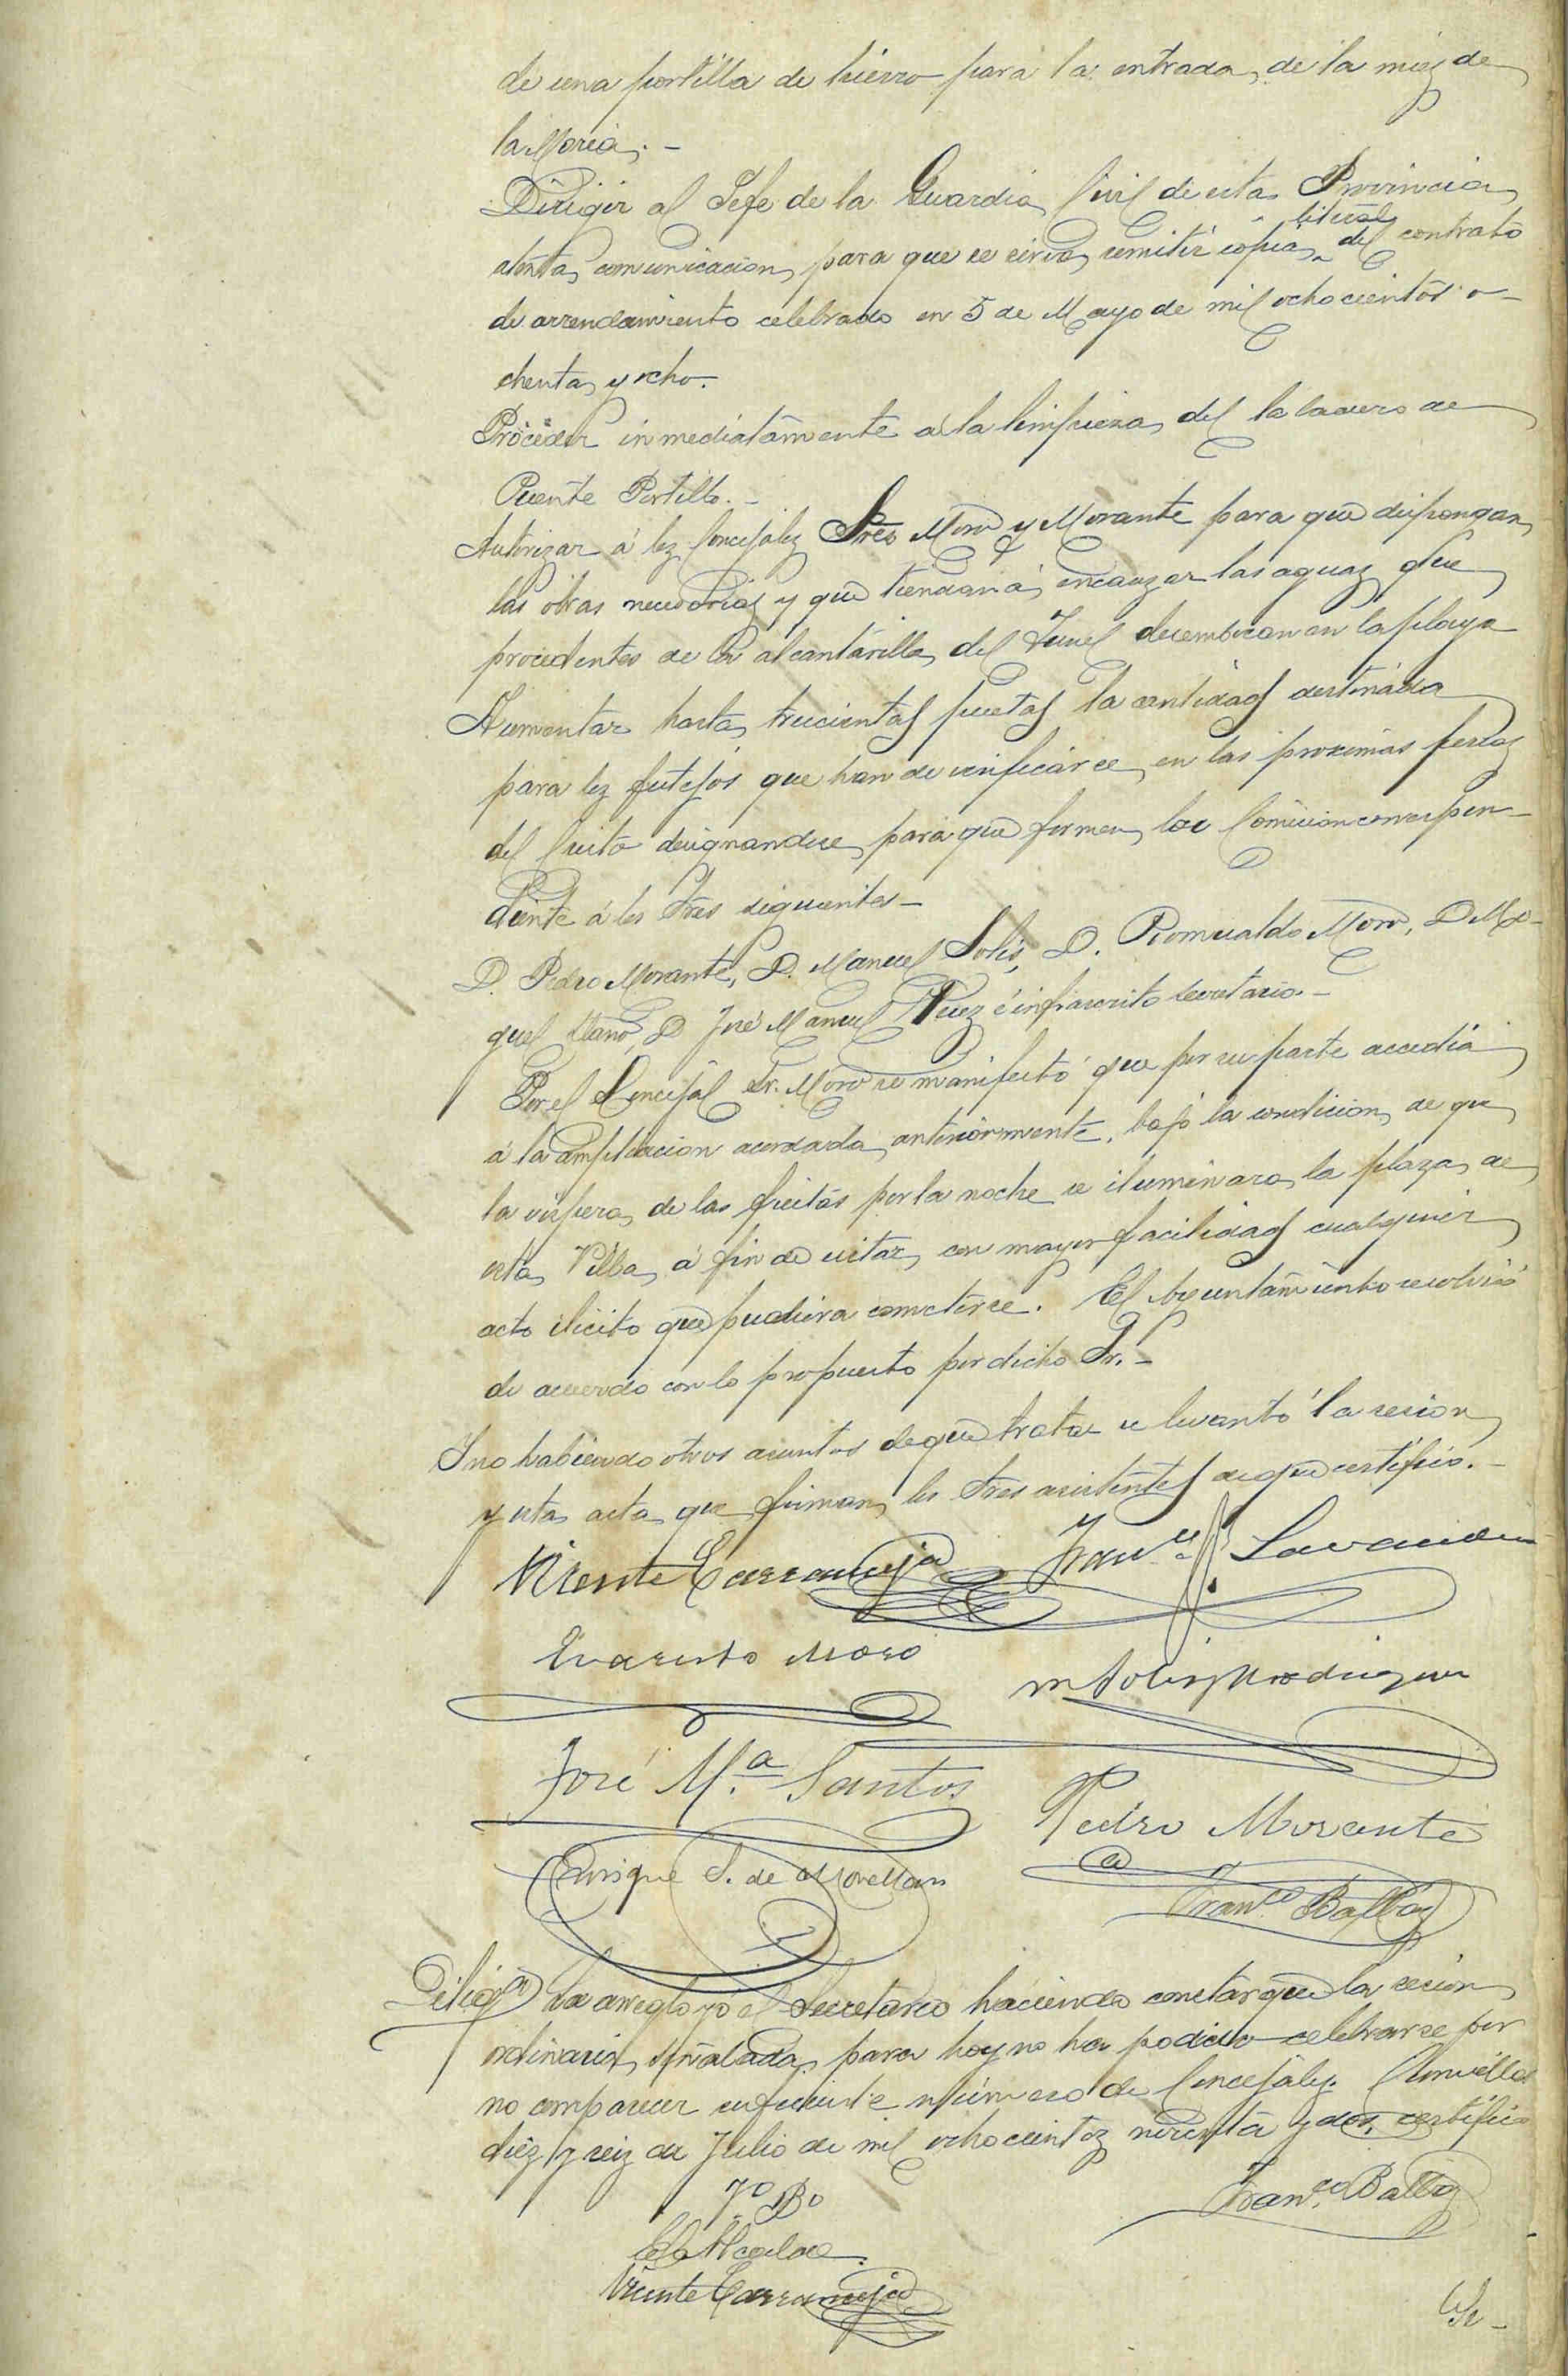 de una portilla de hierro para la entrada de la miez de
la Moria. -
Dirigir al Jefe de la Guardia Civil de esta Provincia
atenta comunicacion para que se sirva remitir copia literal del contrato
de arrendamiento celebrado en 5 de Mayo de mil ochocientos o-
chenta y ocho.
Proceder inmediatamente á la limpieza del labadero de
Puente Portillo. -
Autorizar á los Concejales Sres Moro y Morante para que dispongan
las obras necesarias y que tiendan á encauzar las aguas que
procedentes de la alcantarilla del Tunel desembocan en la playa
Aumentar hasta trescientas pesetas la cantidad destinada
para los festejos que han de verificarse en las proximas ferias
del Cristo designandose para que formen la Comision correspon-
diente á los Sres siguientes -
D. Pedro Morante, D. Manuel Solis, D. Romualdo Moro, D. Mi-
guel Llano, D José Manuel Perez é infrascrito secretario. -
Por el Concejal Sr. Moro se manifestó que por su parte accedia
á la ampliacion acordada anteriormente, bajo la condicion de que
la vispera de las fiestas por la noche se iluminara la plaza de
esta Villa á fin de evitar con mayor facilidad cualquier
acto ilicito que pudiera cometerse. El Ayuntamiento resolvió
de acuerdo con lo propuesto por dicho Sr. -
Y no habiendo otros asuntos de que tratar se levantó la sesion
y esta acta que firman los Sres asistentes de que certifico. -
Vicente Carrandeja Franco. Lavandera
Evaristo Moro
M Solis y Rodriguez
José M.a Santos
Pedro Morante
Enrique S. de Movellan
Franco. Balbas
Diliga La arreglo yo el Secretario haciendo constar que la sesion
ordinaria señalada para hoy no ha podido celebrarse por
no comparecer suficiente número de Concejales.
diez y seis de Julio de mil ochocientos noventa y dos, certifico
Vo Bo
Franco. Balbas
El Alcalde
Vicente Carrandeja